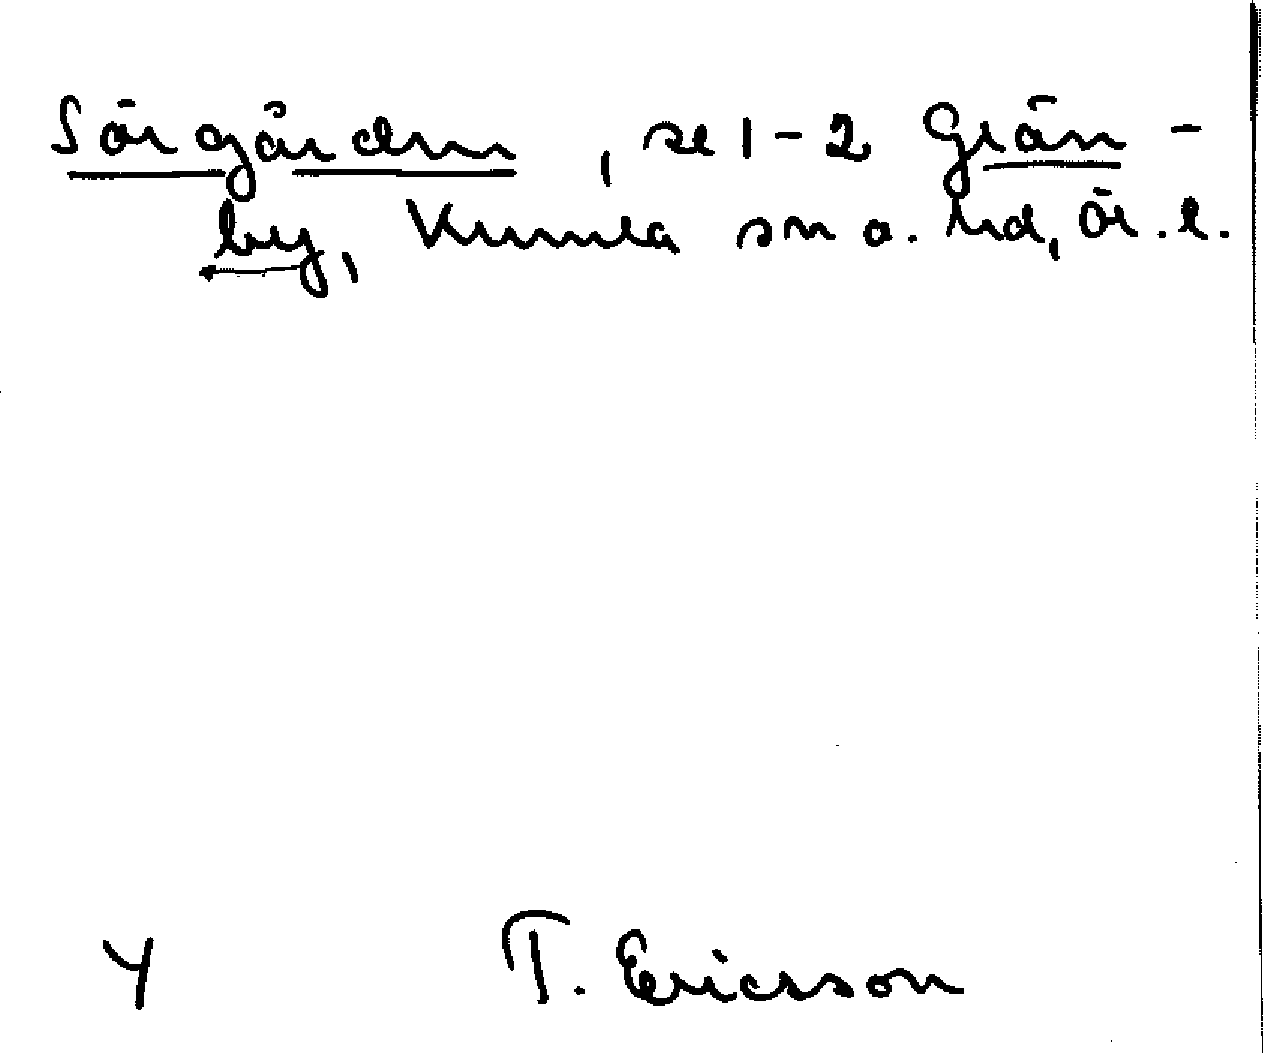 Sörgården, se 1-2 Grän-
by, Kumla sn o. hd, Ör.l.
Y T. Ericsson